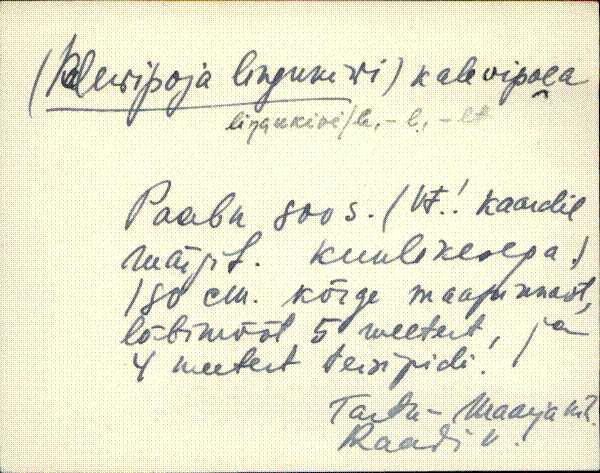 (Kalevipoja lingukivi) kalevipoea
lingukivi/le, -l, -lt
Paabu soos. (VF.! kaardil
märgit.
180 cm. kõrge maapinnast,
läbimõõt 5 meetert, ja
4 meetert teisipidi.
Tartu-Maarja khk.
Raadi v.